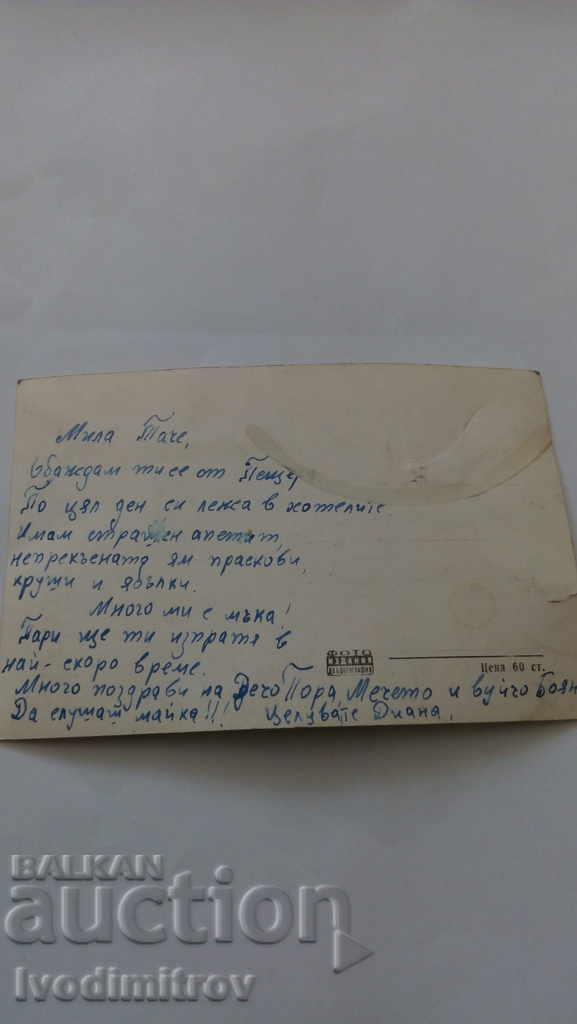 Мила Таче,
Обаждам ти се от Пещер
По цял ден си лежа в хотелите.
Имам страшен апетит,
непрекъснато ям праскови,
круши и ябълки.
Много ми е мъка!
Пари ще ти изпратя в
най-скоро време.
Много поздрави на Дечо Пора, Мечето и вуйчо Боян
Да слушаш майка!!! Целувате Диана.
ФОТО
ИЗДАНИЯ
Цена 60 ст.
BALKAN
auction
Ivodimitrov